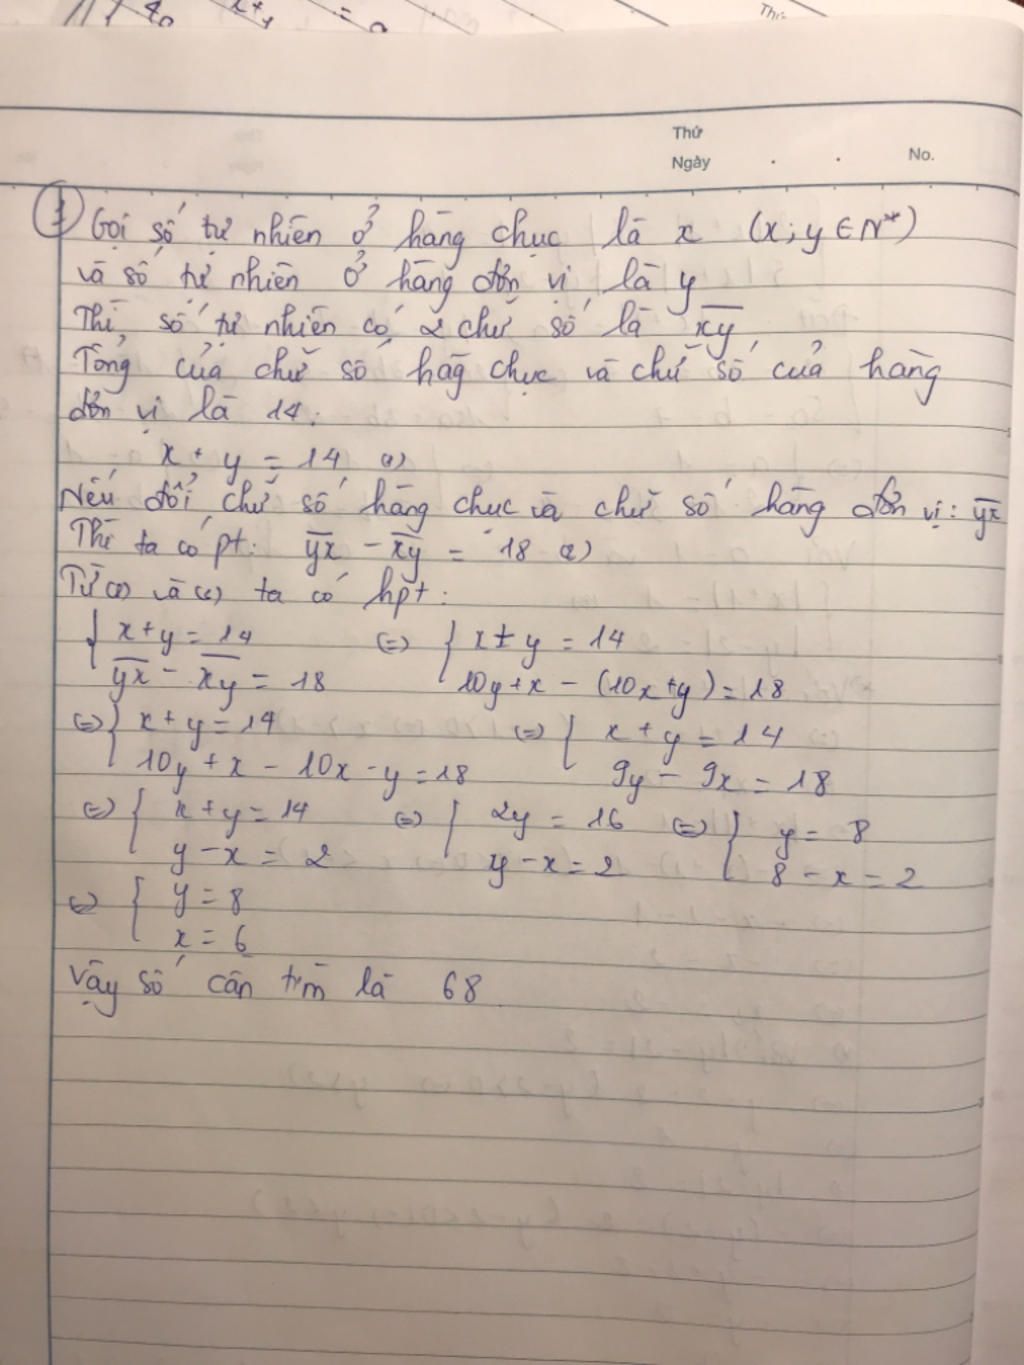 Thứ
Ngày . . No.
① Gọi số tự nhiên ở hàng chục là x (x; y ∈ N*)
và số tự nhiên ở hàng đơn vị là y
Thì số tự nhiên có 2 chữ số là x̅y̅
Tổng của chữ số hàg chục và chữ số của hàng
đơn vị là 14:
x + y = 14 (1)
Nếu đổi chữ số hàng chục và chữ số hàng đơn vị: y̅x̅
Thì ta có pt: y̅x̅ - x̅y̅ = 18 (2)
Từ (1) và (2) ta có hpt:
{ x + y = 14 (=) { x + y = 14
y̅x̅ - x̅y̅ = 18 10y + x - (10x + y) = 18
(=) { x + y = 14 (=) { x + y = 14
10y + x - 10x - y = 18 9y - 9x = 18
(=) { x + y = 14 (=) { 2y = 16 (=) { y = 8
y - x = 2 y - x = 2 8 - x = 2
(=) { y = 8
x = 6
Vậy số cần tìm là 68